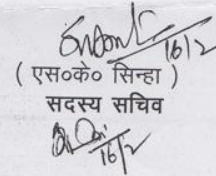 16/2
( एस०के० सिन्हा )
सदस्य सचिव
16/2